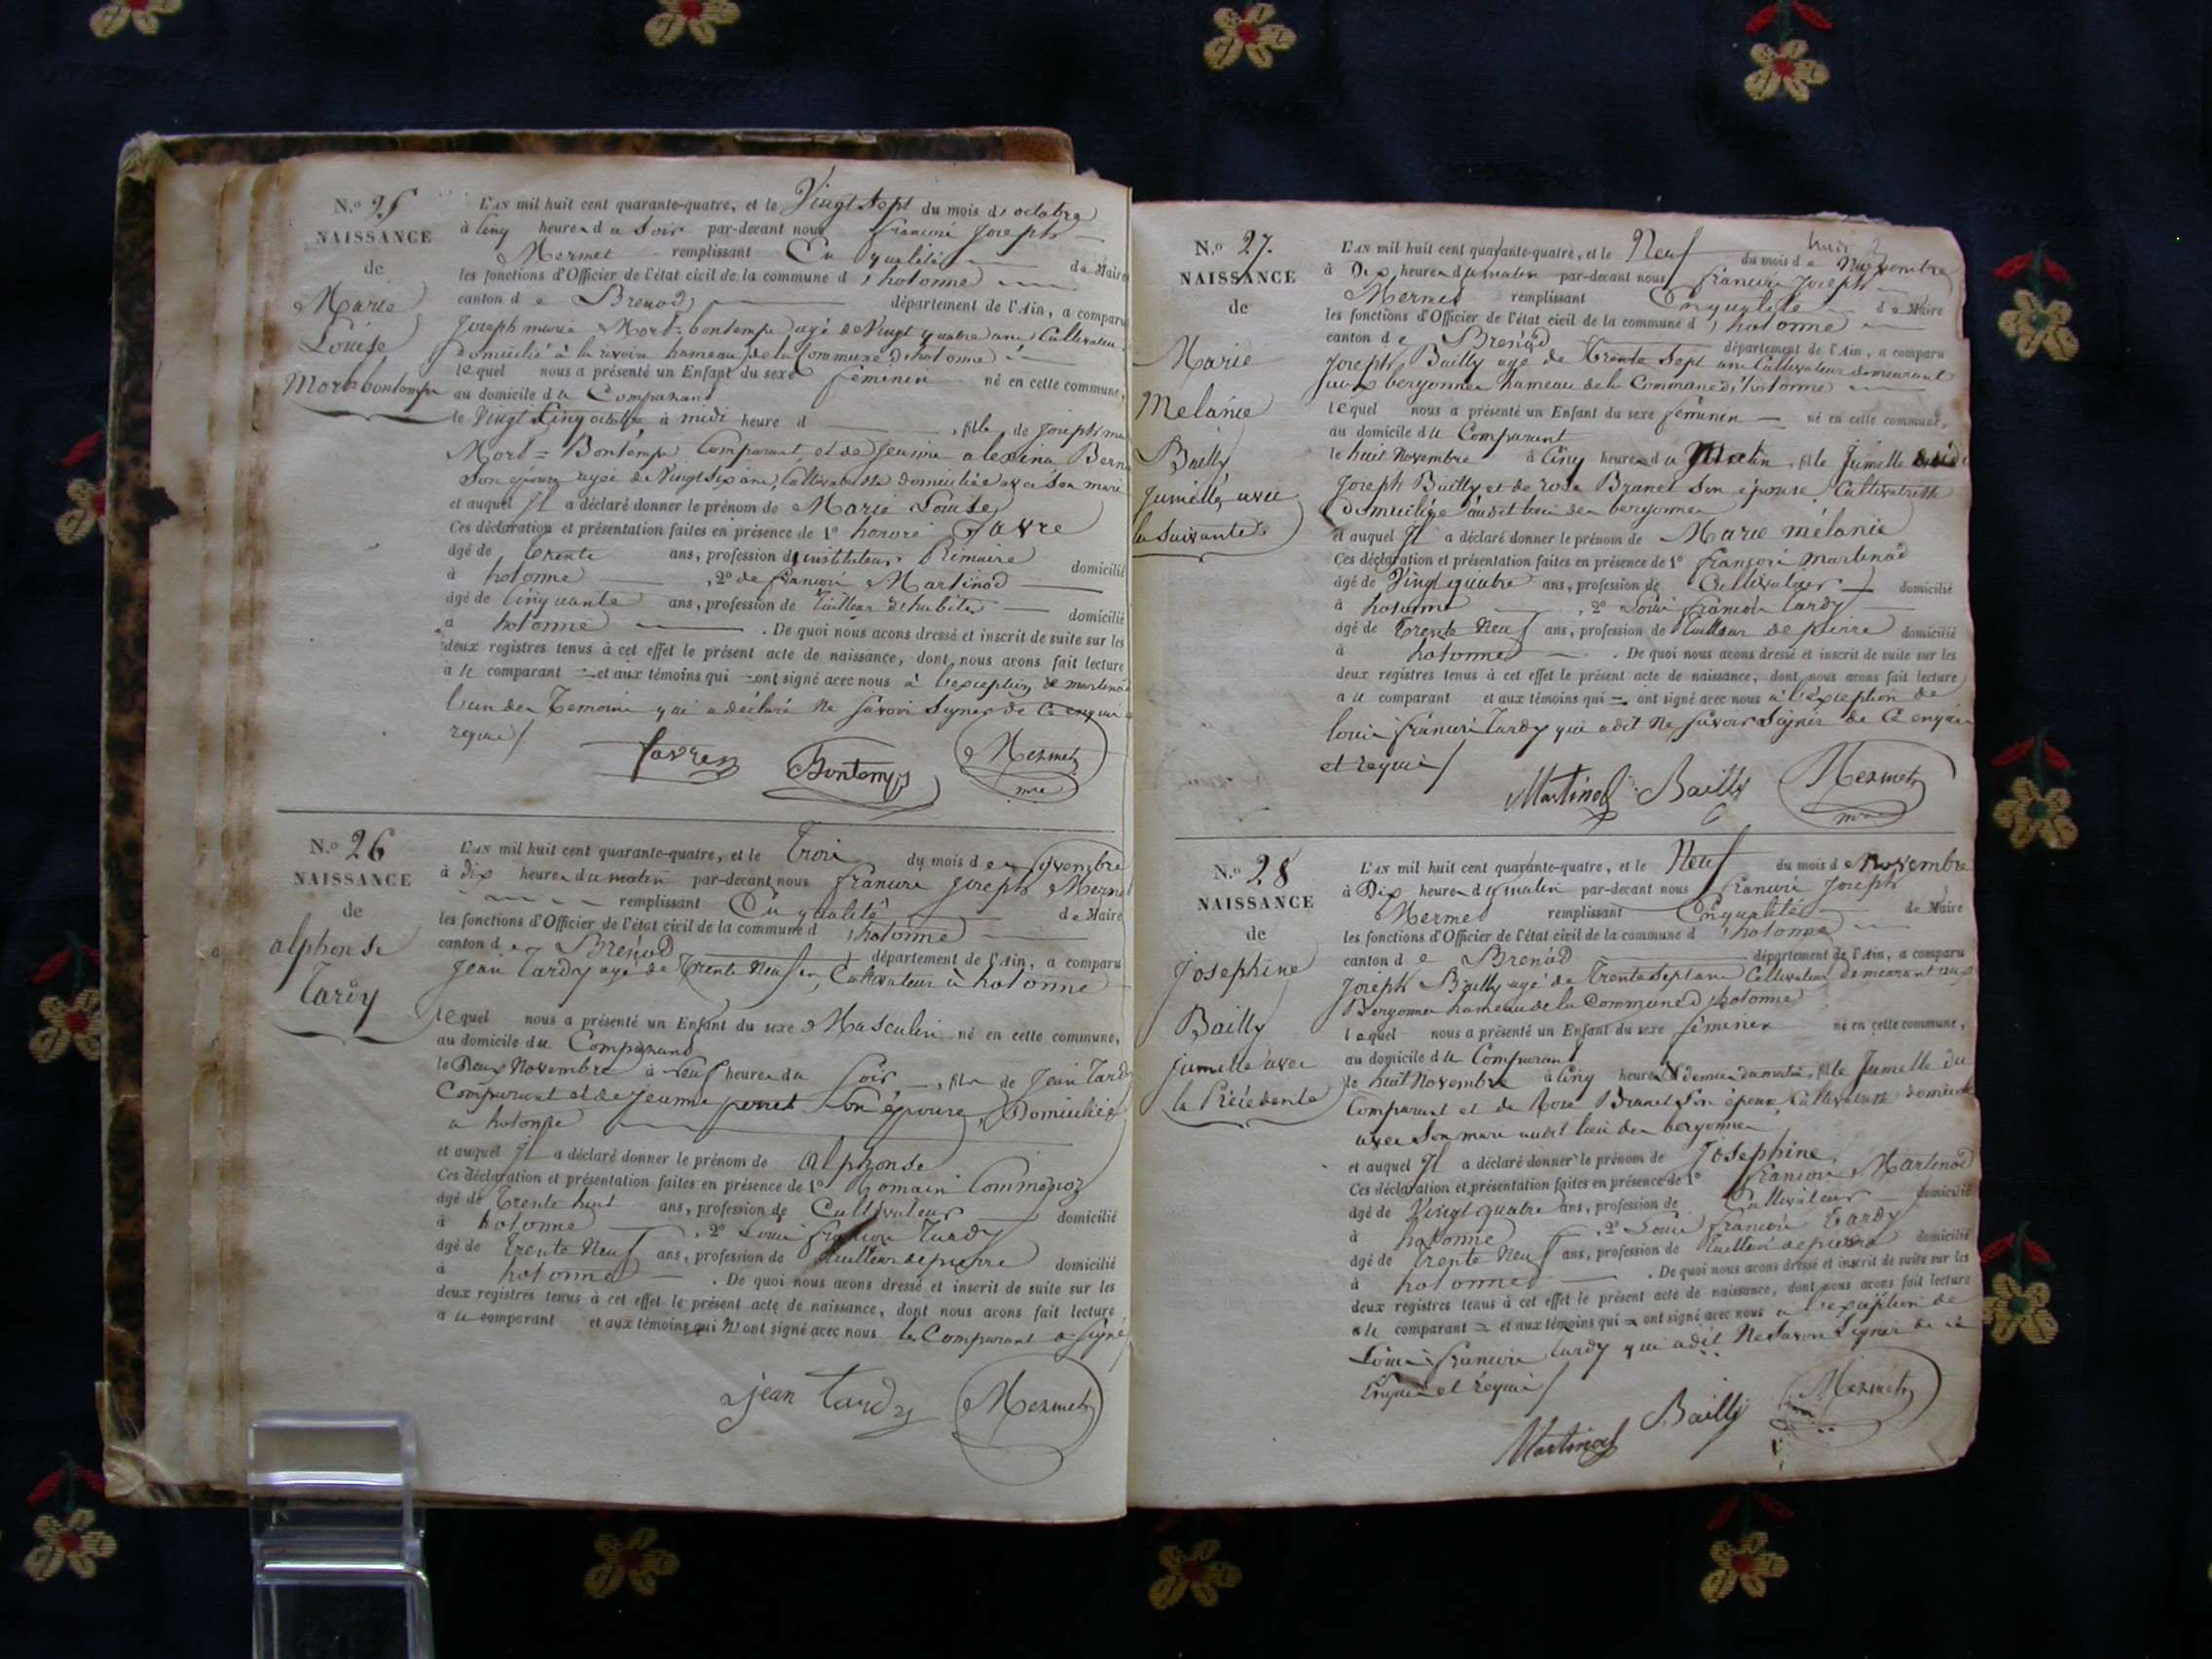 N.o 25
NAISSANCE
de
Marie
Louise
Mort=bontemps
L'AN mil huit cent quarante-quatre, et le Vingt Sept du mois d'octobre
à Cinq heures du Soir par-devant nous françois Joseph
Mermet remplissant En qualité de Maire
les fonctions d'Officier de l'état civil de la commune d'hotonne
canton de Brenod département de l'Ain, a comparu
Joseph marie Mort=bontemps agé de Vingt quatre ans Cultivateur
domicilié à la rivoire hameau de la Commune d'hotonne
lequel nous a présenté un Enfant du sexe féminin né en cette commune,
au domicile du Comparant
le Vingt Cinq octobre à midi heure d , fille de Joseph
Mort=Bontemps Comparant, et de Jeanne alexina
Son épouse agée de Vingt Six ans, Cultivatrice domiciliée avec Son mari
et auquel Il a déclaré donner le prénom de Marie Louise
Ces déclaration et présentation faites en présence de 1o honoré favre
âgé de trente ans, profession d'instituteur Primaire domicilié
à hotonne , 2o de françois Martinod
âgé de Cinquante ans, profession de tailleur d'habits domicilié
à hotonne . De quoi nous avons dressé et inscrit de suite sur les
deux registres tenus à cet effet le présent acte de naissance, dont nous avons fait lecture
à le comparant et aux témoins qui ont signé avec nous à l'exception de martinod
l'un des Temoins qui a déclaré Ne Savoir Signer de Ce enquis
requis
favre Bontemps Mermet
mre
N.o 26
NAISSANCE
de
alphonse
Tardy
L'AN mil huit cent quarante-quatre, et le Trois du mois de novembre
à dix heures du matin par-devant nous françois Joseph Mermet
remplissant En qualité de Maire
les fonctions d'Officier de l'état civil de la commune d'hotonne
canton de Brenod département de l'Ain, a comparu
Jean Tardy agé de Trente Neuf ans, Cultivateur à hotonne
lequel nous a présenté un Enfant du sexe Masculin né en cette commune,
au domicile du Comparant
le Deux Novembre à neuf heures du Soir , fils de Jean Tardy
Comparant et de jeanne perret Son épouse, Domiciliés
a hotonne
et auquel Il a déclaré donner le prénom de alphonse
Ces déclaration et présentation faites en présence de 1o Romain
âgé de Trente huit ans, profession de Cultivateur domicilié
à hotonne , 2o Louis françois Tardy
âgé de trente Neuf ans, profession de tailleur de pierre domicilié
à hotonne . De quoi nous avons dressé et inscrit de suite sur les
deux registres tenus à cet effet le présent acte de naissance, dont nous avons fait lecture
a le comparant et aux témoins qui N'ont signé avec nous le Comparant a Signé
jean tardy Mermet
N.o 27.
NAISSANCE
de
Marie
Melanie
Bailly
Jumelle avec
la Suivante
L'AN mil huit cent quarante-quatre, et le Neuf du mois de Novembre
à Dix heures du matin par-devant nous françois Joseph
Mermet remplissant En qualité de Maire
les fonctions d'Officier de l'état civil de la commune d'hotonne
canton de Brenod département de l'Ain, a comparu
Joseph Bailly agé de trente Sept ans Cultivateur demeurant
aux bergonnes hameau de la Commune d'hotonne
lequel nous a présenté un Enfant du sexe féminin né en cette commune,
au domicile du Comparant
le huit Novembre à Cinq heures du Matin, fille Jumelle
Joseph Bailly et de rose Brunet Son épouse Cultivatrice
domiciliée audit lieu des bergonnes
et auquel Il a déclaré donner le prénom de Marie mélanie
Ces déclaration et présentation faites en présence de 1o françois martinod
âgé de Vingt quatre ans, profession de Cultivateur domicilié
à hotonne , 2o Louis françois tardy
âgé de Trente Neuf ans, profession de tailleur de pierre domicilié
à hotonne . De quoi nous avons dressé et inscrit de suite sur les
deux registres tenus à cet effet le présent acte de naissance, dont nous avons fait lecture
a le comparant et aux témoins qui ont signé avec nous à l'exception de
louis françois tardy qui a dit Ne Savoir Signer de Ce enquis
et requis
Martinod Bailly Mermet
mre
N.o 28
NAISSANCE
de
Josephine
Bailly
jumelle avec
la Précédente
L'AN mil huit cent quarante-quatre, et le Neuf du mois de Novembre
à Dix heures du matin par-devant nous françois Joseph
Mermet remplissant En qualité de Maire
les fonctions d'Officier de l'état civil de la commune d'hotonne
canton de Brenod département de l'Ain, a comparu
Joseph Bailly agé de trente Sept ans Cultivateur demeurant aux
Bergonnes hameau de la Commune d'hotonne
lequel nous a présenté un Enfant du sexe féminin né en cette commune,
au domicile du Comparant
le huit Novembre à Cinq heures & demie du matin, fille Jumelle du
Comparant et de Rose Brunet Son épouse, Cultivatrice domiciliée
avec Son mari audit lieu des bergonnes
et auquel Il a déclaré donner le prénom de Josephine
Ces déclaration et présentation faites en présence de 1o françois Martinod
âgé de Vingt quatre ans, profession de Cultivateur domicilié
à hotonne , 2o Louis françois Tardy
âgé de trente Neuf ans, profession de tailleur de pierre domicilié
à hotonne . De quoi nous avons dressé et inscrit de suite sur les
deux registres tenus à cet effet le présent acte de naissance, dont nous avons fait lecture
à le comparant et aux témoins qui ont signé avec nous a l'exception de
Louis françois tardy qui a dit Ne Savoir Signer de ce
Enquis et requis
Martinod Bailly Mermet